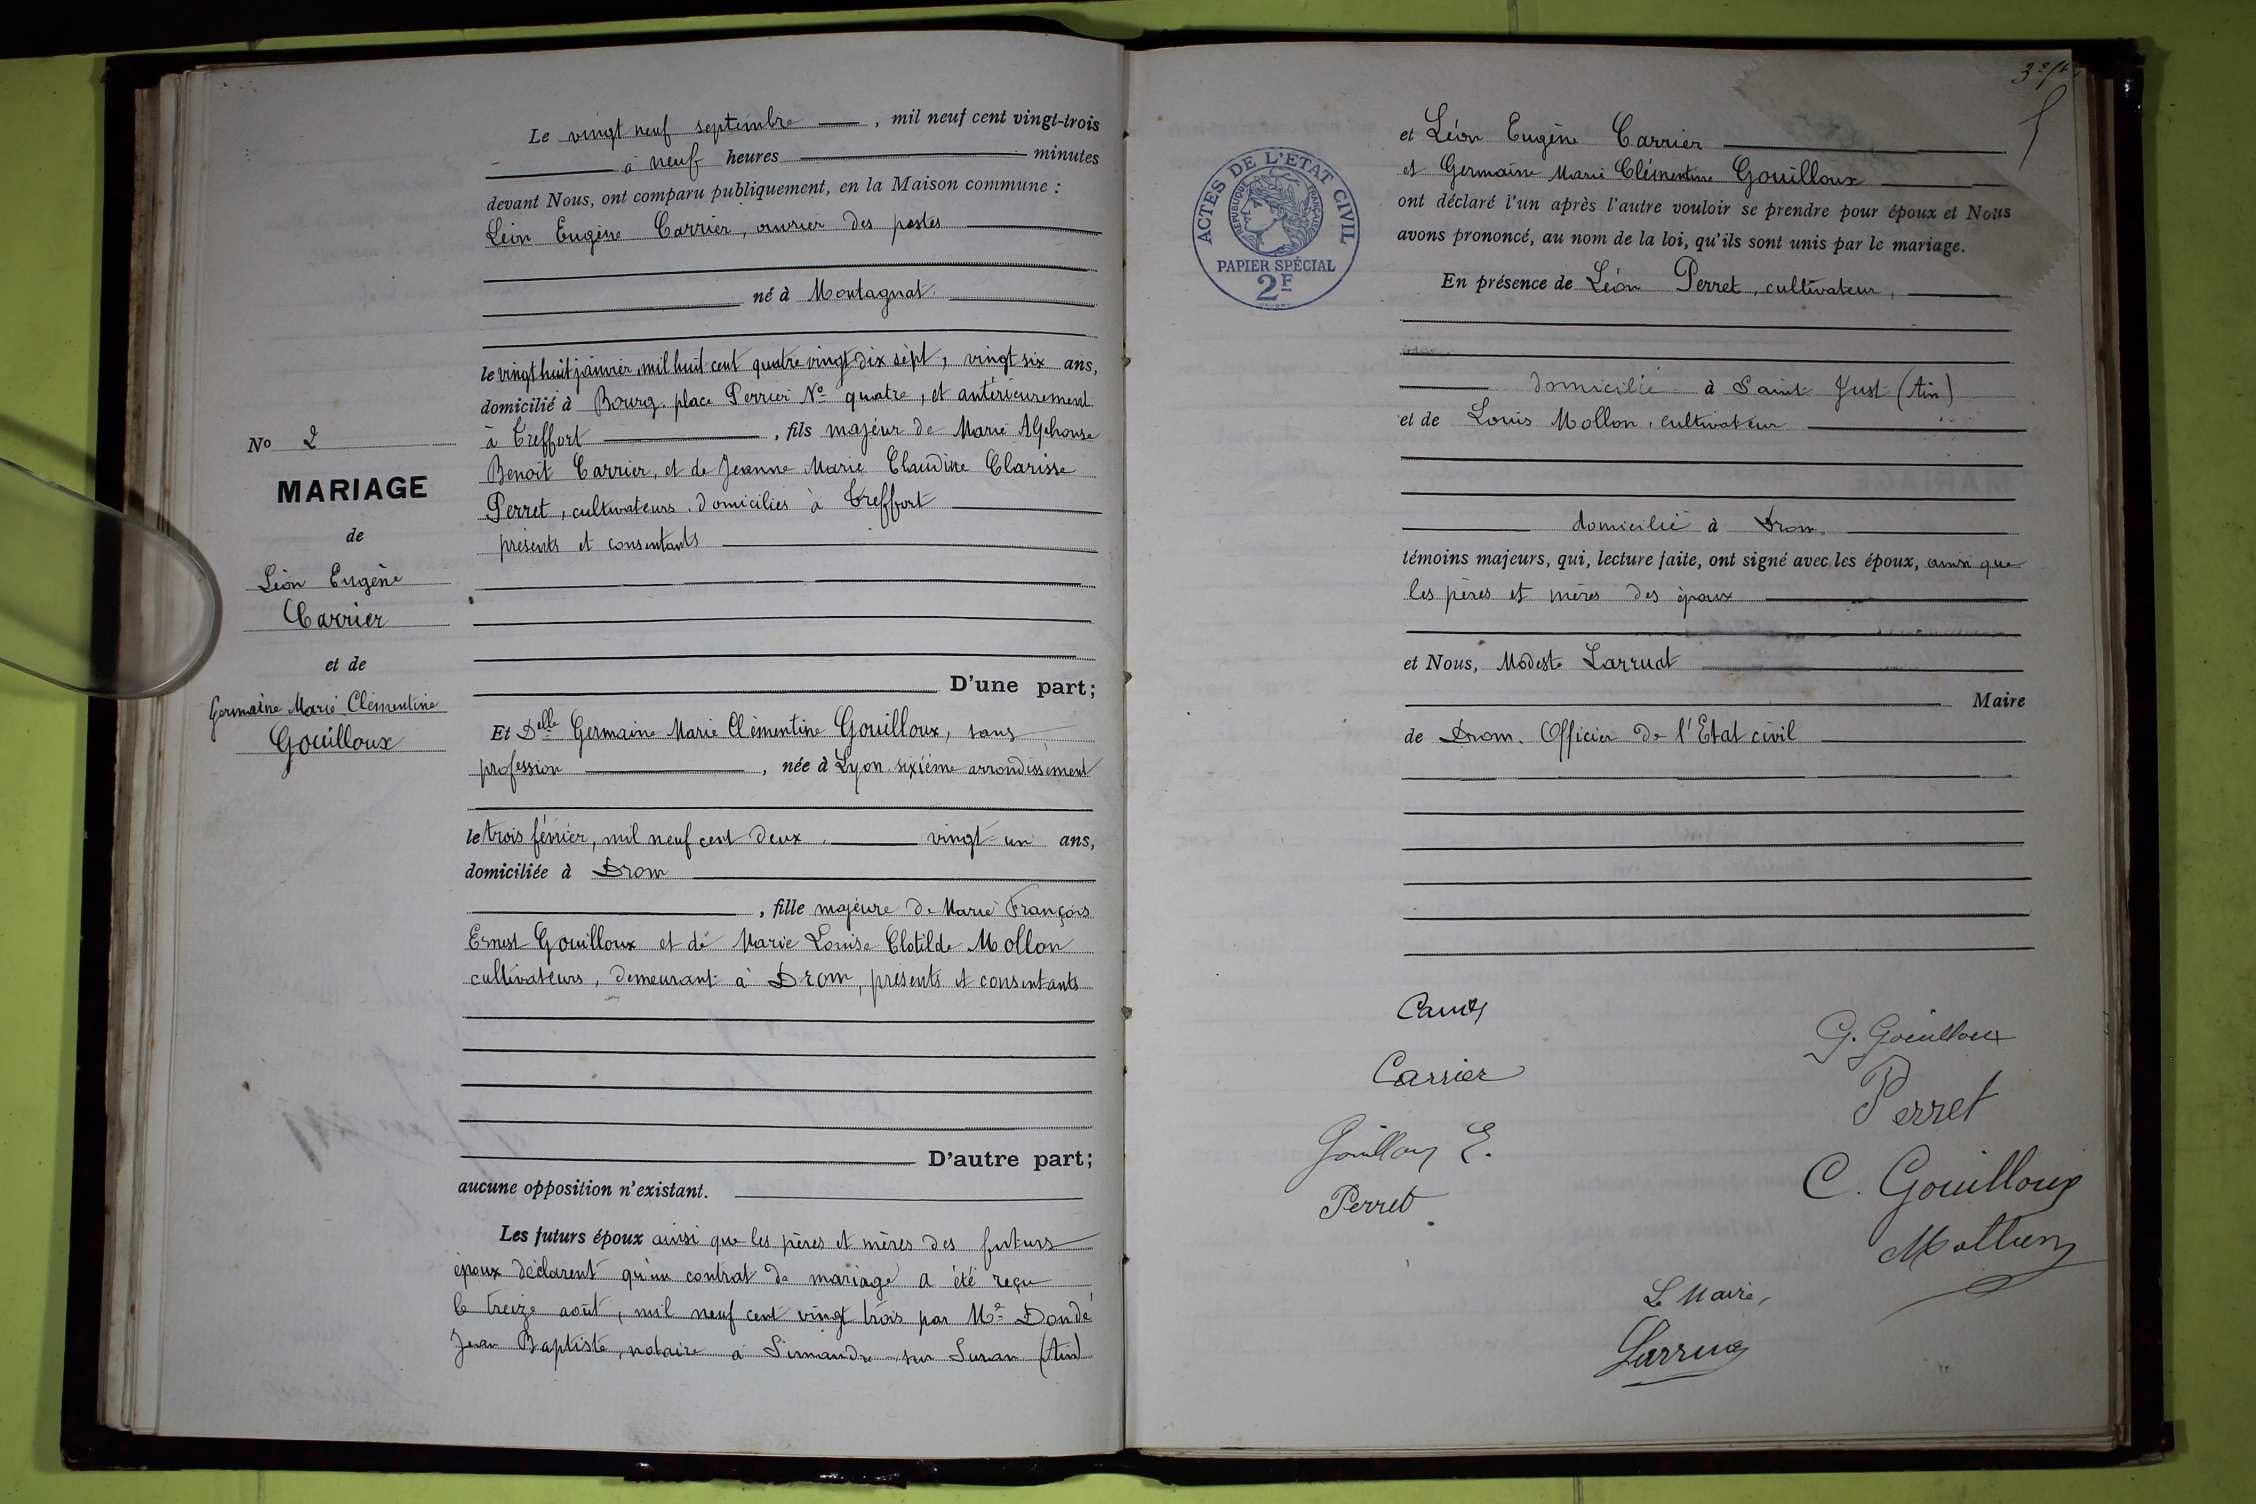 Le vingt neuf septembre, mil neuf cent vingt-trois
à neuf heures minutes
devant Nous, ont comparu publiquement, en la Maison commune :
Léon Eugène Carrier, ouvrier des postes
né à Montagnat
le vingt huit janvier, mil huit cent quatre vingt dix sept, vingt six ans,
domicilié à Bourg, place Perrier No quatre, et antérieurement
à Treffort, fils majeur de Marie Alphonse
Benoit Carrier, et de Jeanne Marie Claudine Clarisse
Perret, cultivateurs domiciliés à Treffort
présents et consentants
No 2
MARIAGE
de
Léon Eugène
Carrier
et de
Germaine Marie Clémentine
Gouilloux
D'une part;
Et Delle Germaine Marie Clémentine Gouilloux, sans
profession, née à Lyon sixième arrondissement
le trois février, mil neuf cent deux, vingt-un ans,
domiciliée à Drom
, fille majeure de Marie François
Ernest Gouilloux et de Marie Louise Clotilde Mollon
cultivateurs, demeurant à Drom, présents et consentants
D'autre part;
aucune opposition n'existant.
Les futurs époux ainsi que les pères et mères des futurs
époux déclarent qu'un contrat de mariage a été reçu
le treize août, mil neuf cent vingt trois par Me Dondé
Jean Baptiste, notaire à Simandre sur Suran (Ain)
ACTES DE L'ETAT CIVIL
REPUBLIQUE FRANÇAISE
PAPIER SPÉCIAL
2F
et Léon Eugène Carrier
et Germaine Marie Clémentine Gouilloux
ont déclaré l'un après l'autre vouloir se prendre pour époux et Nous
avons prononcé, au nom de la loi, qu'ils sont unis par le mariage.
En présence de Léon Perret, cultivateur,
domicilié à Saint Just (Ain)
et de Louis Mollon, cultivateur
domicilié à Drom
témoins majeurs, qui, lecture faite, ont signé avec les époux, ainsi que
les pères et mères des époux
et Nous, Modeste Larrudt
Maire
de Drom. Officier de l'Etat civil
Carrier
G. Gouilloux
Carrier
Perret
Gouilloux E.
C. Gouilloux
Perret
Mollon
Le Maire,